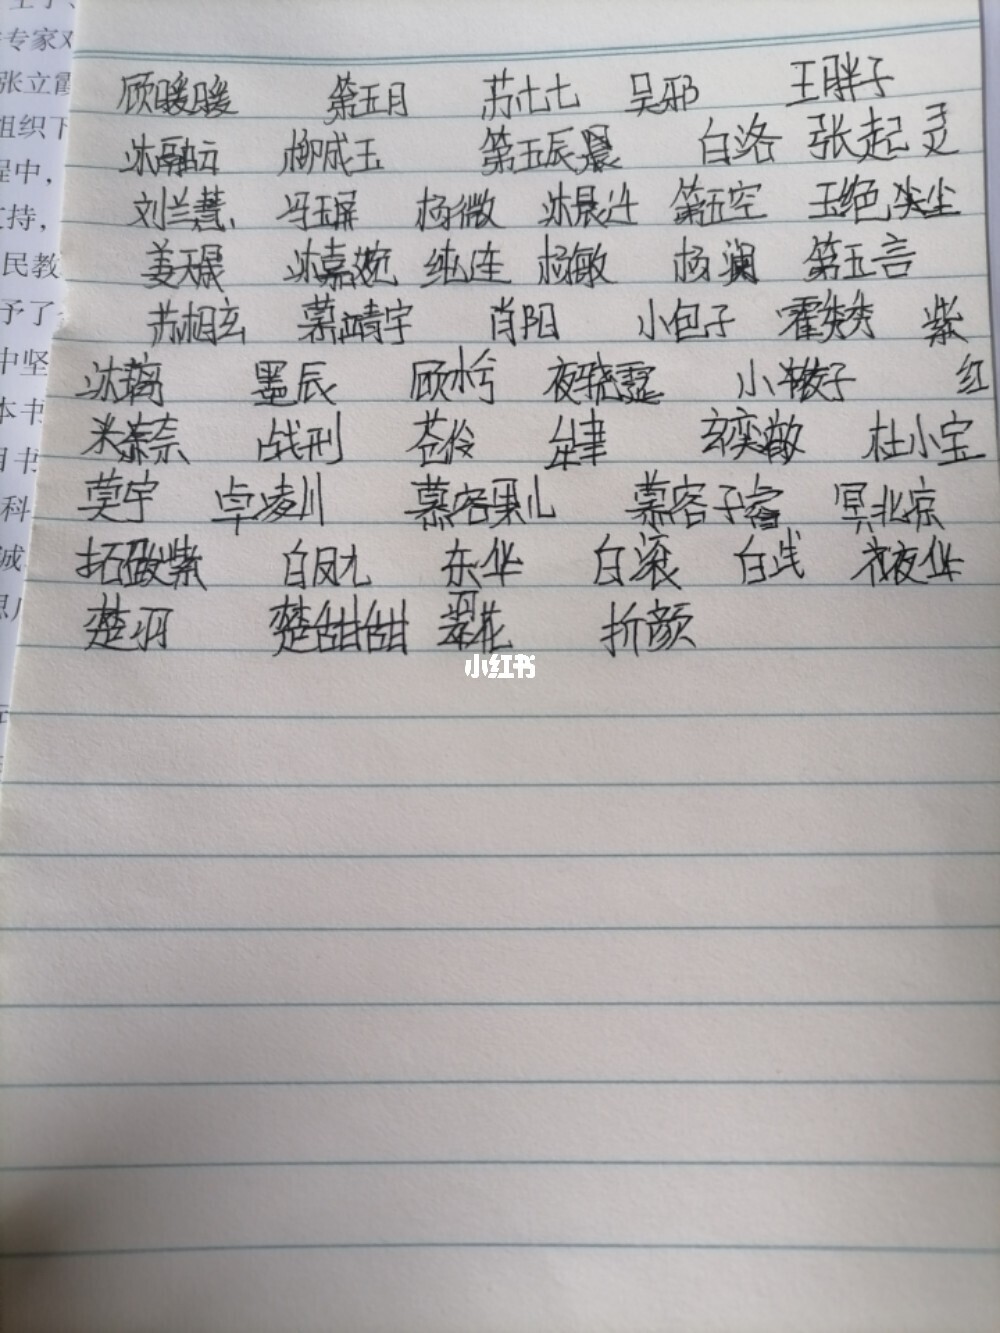 顾暖暖 第五月 苏七七 吴邪 王胖子
沐融云 柳成玉 第五辰晨 白洛 张起灵
刘兰慧 冯玉屏 杨微 沐晨 第五空 玉绝尘
姜天晟 沐嘉婉 纯连 杨敏 杨澜 第五言
苏相玄 慕靖宇 肖阳 小包子 霍美秀 紫红
沐璃 墨辰 顾水兮 夜晓霆 小子
米奈 战刑 苍伶 玄奕 杜小宝
莫宇 卓凌川 慕容果儿 慕容子睿 冥北京
拓跋紫 白凤九 东华 白滚 白浅 夜华
楚羽 楚甜甜 翠花 折颜
小红书
专家对
张立霞
组织下
程中,
支持,
民教
予了
中坚
本书
科
诚